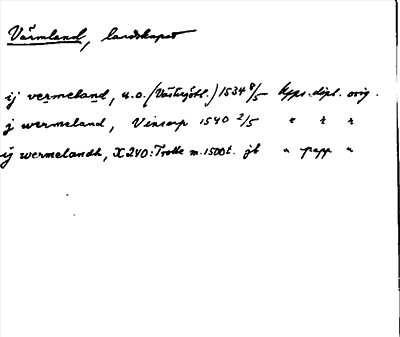 Värmland, landskapet
ij vermeland, u.o. (Västergötl.) 1534 8/5 Upps. dipl. orig.
j wermeland, Vinsarp 1540 2/5 " " "
ij wermelandh, X 240: Trolle m. 1500 t. jb " papp "